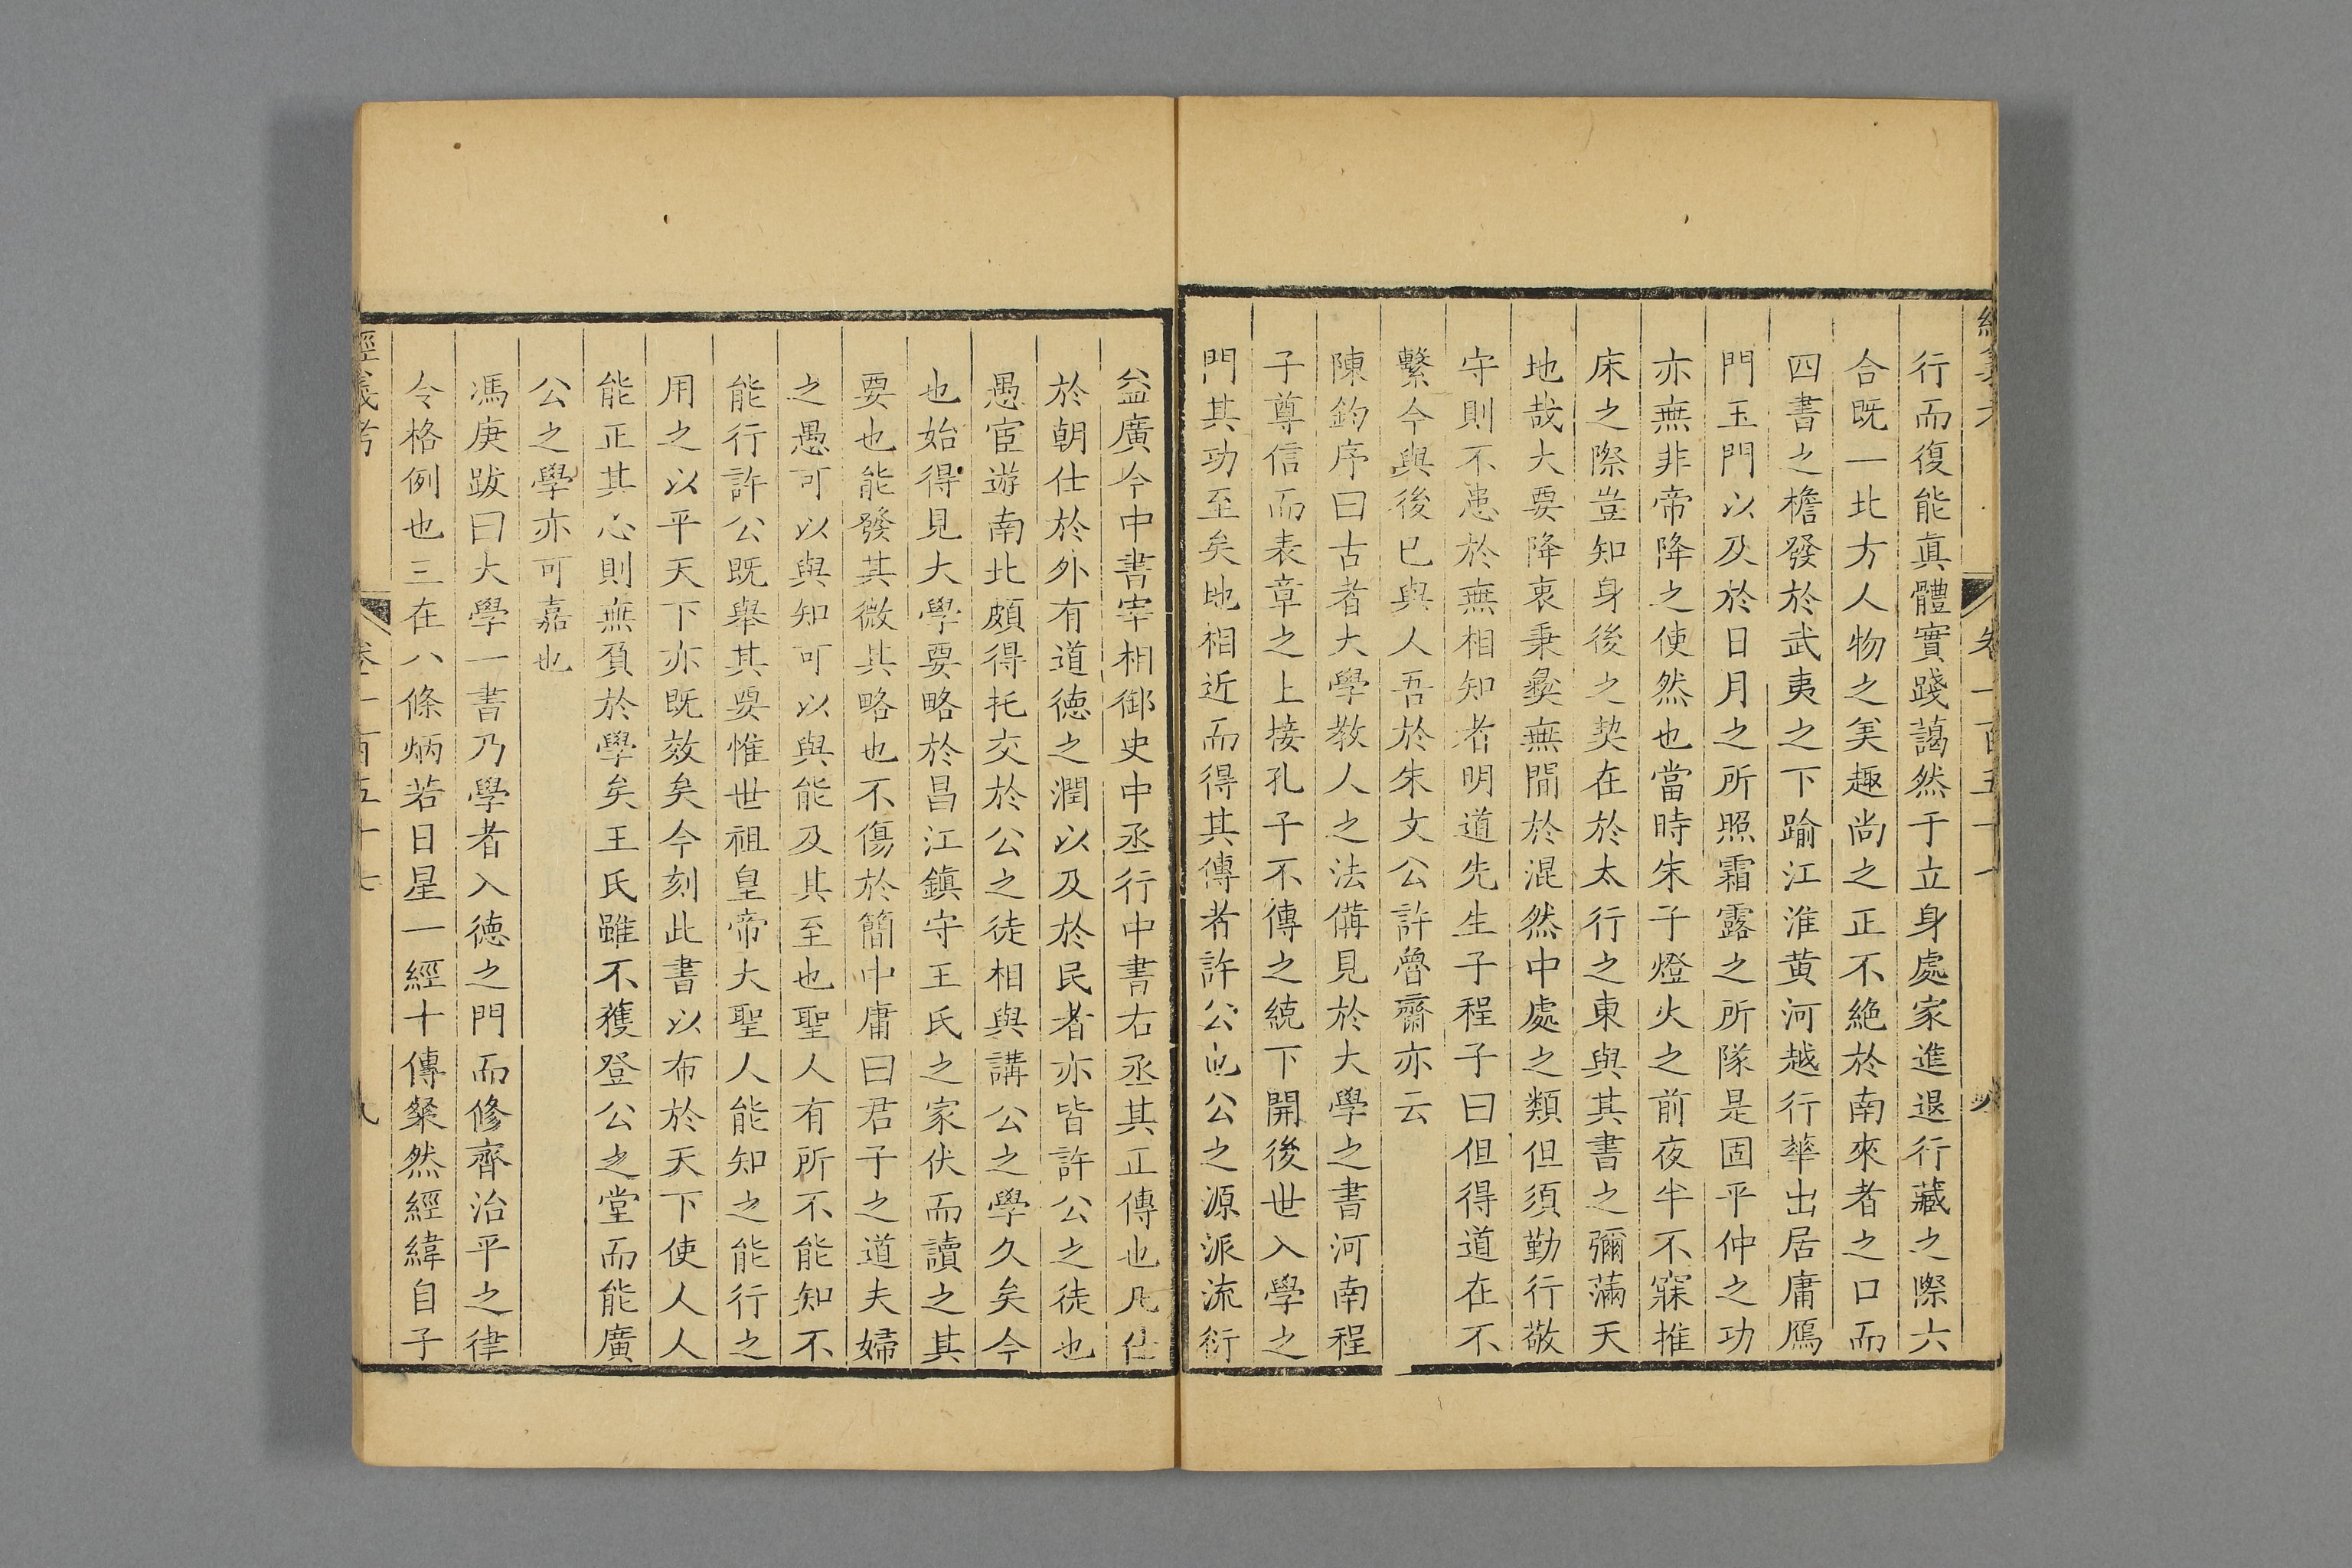 行而復能真體實踐藹然于立身處家進退行藏之際六
合既一北方人物之美趣尚之正不絶於南來者之口而
四書之檐發於武夷之下踰江淮黄河越行華出居庸鴈
門玉門以及於日月之所照霜露之所隊是固平仲之功
亦無非帝降之使然也當時朱子燈火之前夜半不寐推
床之際豈知身後之契在於太行之東與其書之彌滿天
地哉大要降衷秉彝無間於混然中處之類但須勤行敬
守則不患於無相知者明道先生子程子曰但得道在不
繫今與後已與人吾於朱文公許魯齋亦云
陳鈞序曰古者大學教人之法備見於大學之書河南程
子尊信而表章之上接孔子不傳之統下開後世入學之
門其功至矣地相近而得其傳者許公也公之源派流衍
益廣今中書宰相御史中丞行中書右丞其正傳也凡仕
於朝仕於外有道德之潤以及於民者亦皆許公之徒也
愚宦遊南北頗得托交於公之徒相與講公之學久矣今
也始得見大學要略於昌江鎮守王氏之家伏而讀之其
要也能發其微其略也不傷於簡中庸曰君子之道夫婦
之愚可以與知可以與能及其至也聖人有所不能知不
能行許公既舉其要惟世祖皇帝大聖人能知之能行之
用之以平天下亦既效矣今刻此書以布於天下使人人
能正其心則無負於學矣王氏雖不獲登公之堂而能廣
公之學亦可嘉也
馮庚跋曰大學一書乃學者入德之門而修齊治平之律
令格例也三在八條炳若日星一經十傳粲然經緯自子
經義考
卷二百五十七
九